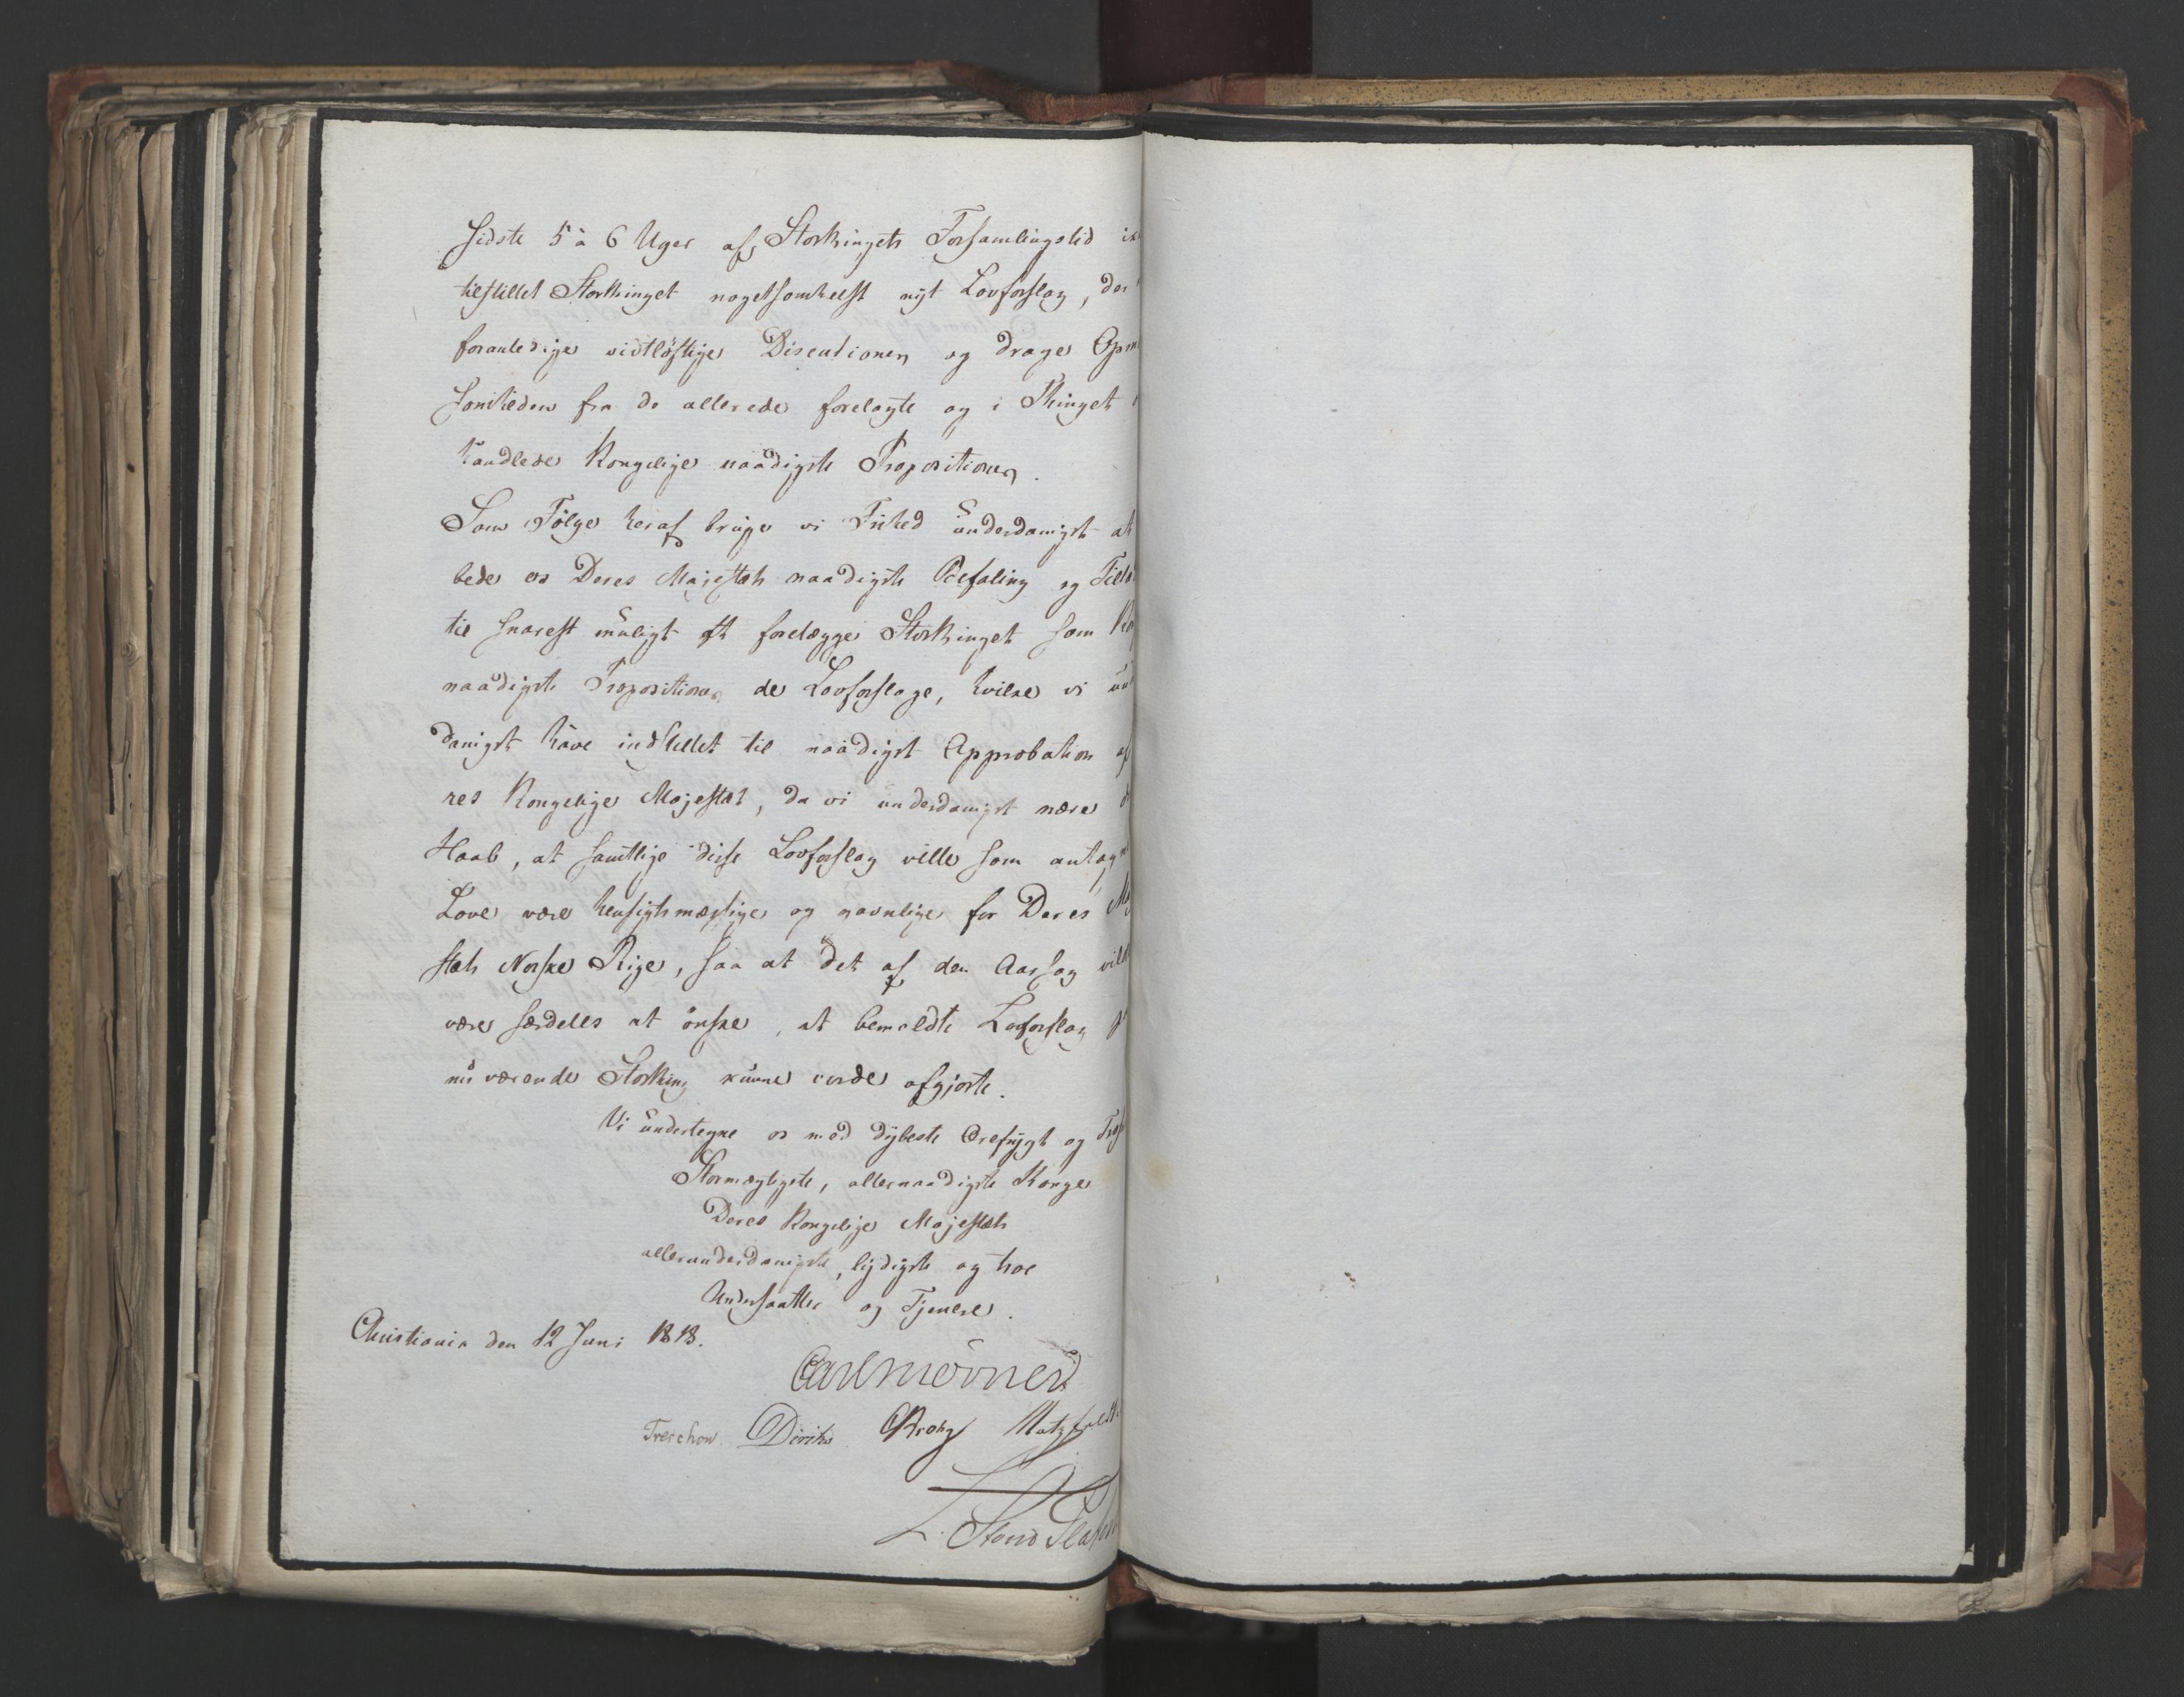 sidste 5 à 6 Uger af Storthingets Forsamlingstid
tilstillet Storthinget nogetsomhelst nyt Lovforslag, der
foranledige vidtløftige Discutioner og drage
somheden fra de allerede forelagte og i Thinget
handlede Kongelige naadigste Propositioner.
Som Følge heraf bruge vi Frihed underdanigst at
bede os Deres Majestæts naadigste Befaling og
til snarest muligt at forelægge Storthinget som
naadigste Propositioner de Lovforslage, hvilke vi
danigst have indstillet til naadigst Approbation af
res Kongelige Majestæt, da vi underdanigst nære
Haab, at samtlige disse Lovforslag ville som
Love være hensigtsmæssige og gavnlige for Deres
stæts Norske Rige, saa at det af den Aarsag
være særdeles at ønske, at bemeldte Lovforslag
nu værende Storthing kunne vorde afgjorte.
Vi undertegne os med dybeste Ærefrygt og
Stormægtigste, allernaadigste Konge
Deres Kongelige Majestæts
allerunderdanigste, lydigste og troe
Undersaatter og Tjenere.
Christiania den 12 Juni 1818.
Carl Mörner
Treschow Diriks Krohg Motzfeldt
L. Stoud Platou